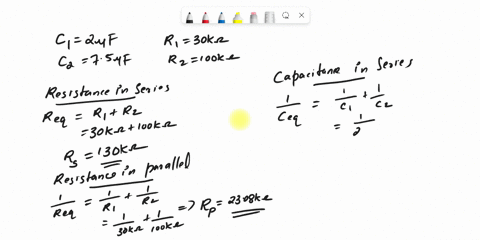 C₁ = 2μF R₁ = 30kΩ
C₂ = 7.5μF R₂ = 100kΩ
Resistance in Series
Req = R₁ + R₂
= 30kΩ + 100kΩ
Rs = 130kΩ
Resistance in parallel
1/Req = 1/R₁ + 1/R₂
= 1/30kΩ + 1/100kΩ => Rp = 2308kΩ
Capacitance in Series
1/Ceq = 1/C₁ + 1/C₂
= 1/2